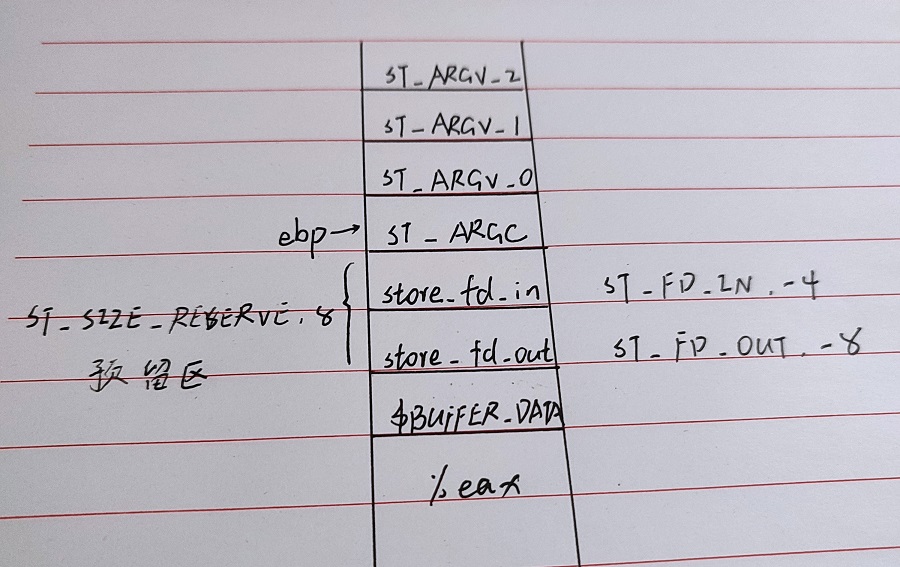 ST_ARGV_2
ST_ARGV_1
ST_ARGV_0
ebp→ ST_ARGC
store_fd_in ST_FD_IN.-4
ST_SIZE_RESERVE.8
store_fd_out ST_FD_OUT.-8
预留区
$BUFFER_DATA
%eax